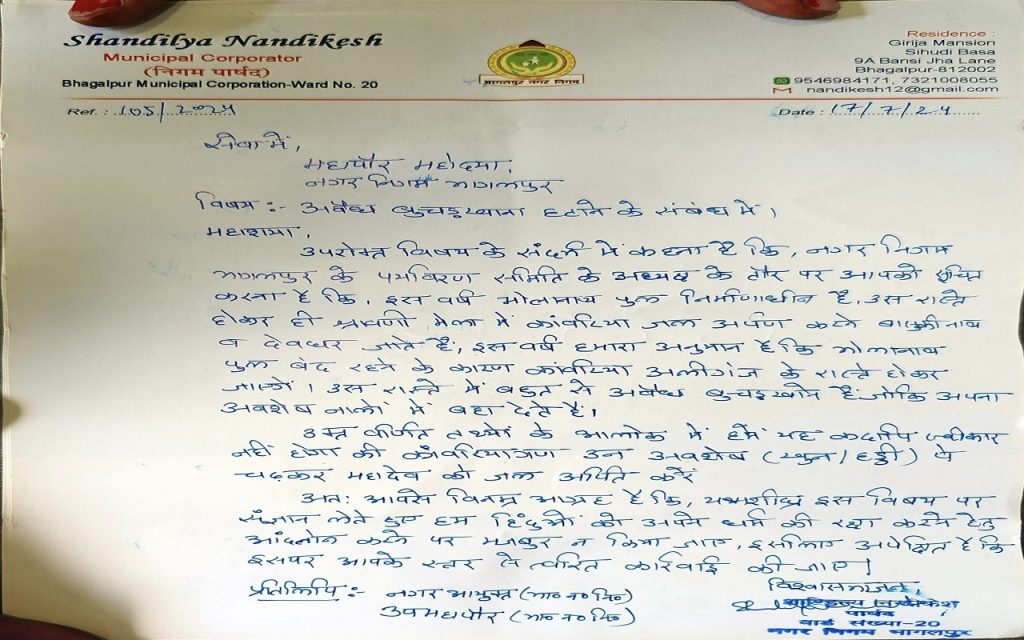 Shandilya Nandikesh
Municipal Corporator
(निगम पार्षद)
Bhagalpur Municipal Corporation-Ward No. 20
भागलपुर नगर निगम
Residence :
Girija Mansion
Sihudi Basa
9A Bansi Jha Lane
Bhagalpur-812002
9546984171, 7321008055
nandikesh12@gmail.com
Ref. : 105/2024
Date : 17/7/24
सेवा में,
महापौर महोदया,
नगर निगम भागलपुर
विषय :- अवैध बुचड़खाना हटाने के संबंध में।
महाशया,
उपरोक्त विषय के संदर्भ में कहना है कि, नगर निगम
भागलपुर के पर्यावरण समिति के अध्यक्ष के तौर पर आपको सूचित
करना है कि, इस वर्ष भोलानाथ पुल निर्माणाधीन है, उस रास्ते
होकर ही श्रावणी मेला में कांवरिया जल अर्पण करने बासुकीनाथ
व देवघर जाते हैं, इस वर्ष हमारा अनुमान है कि भोलानाथ
पुल बंद रहने के कारण कांवरिया अलीगंज के रास्ते होकर
जाएगें। उस रास्ते में बहुत से अवैध बुचड़खाने हैं जोकि अपना
अवशेष नालों में बहा देते हैं।
उक्त वर्णित तथ्यों के आलोक में हमें यह कदापि स्वीकार
नहीं होगा की काँवरियागण उन अवशेष (खुन/हड्डी) पे
चढ़कर महादेव को जल अर्पित करें
अतः आपसे विनम्र आग्रह है कि, यथाशीघ्र इस विषय पर
संज्ञान लेते हुए हम हिंदुओं को अपने धर्म की रक्षा करने हेतु
आंदलोन करने पर मजबुर न किया जाए, इसलिए अपेक्षित है कि
इसपर आपके स्तर से त्वरित कार्रवाई की जाए।
प्रतिलिपि :- नगर आयुक्त (भा० न० नि०)
उपमहापौर (भा० न० नि०)
विश्वासभाजन,
शाण्डिल्य नन्दीकेश
पार्षद
वार्ड संख्या-20
नगर निगम भागलपुर